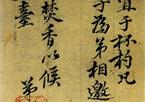 宜于杯杓凡
子为弟相邀
焚香以候
臺
弟